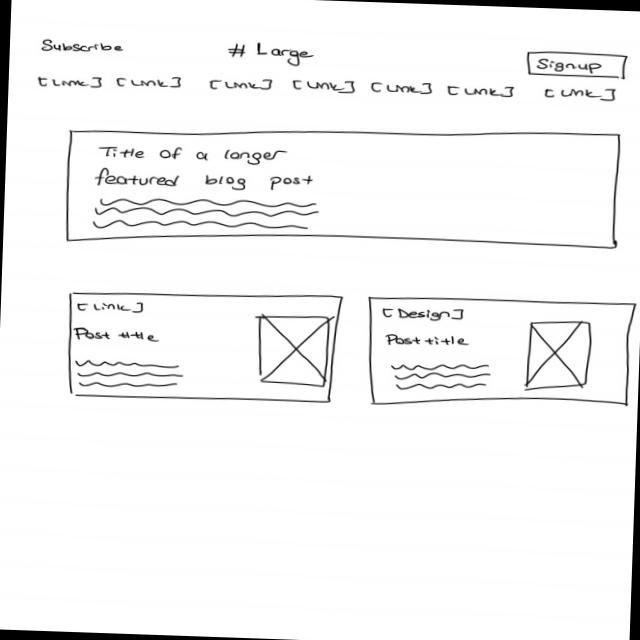 Subscribe # Large Signup
[Link] [Link] [Link] [Link] [Link] [Link] [Link]
Title of a longer
featured blog post
[Link]
Post title
[Design]
Post title